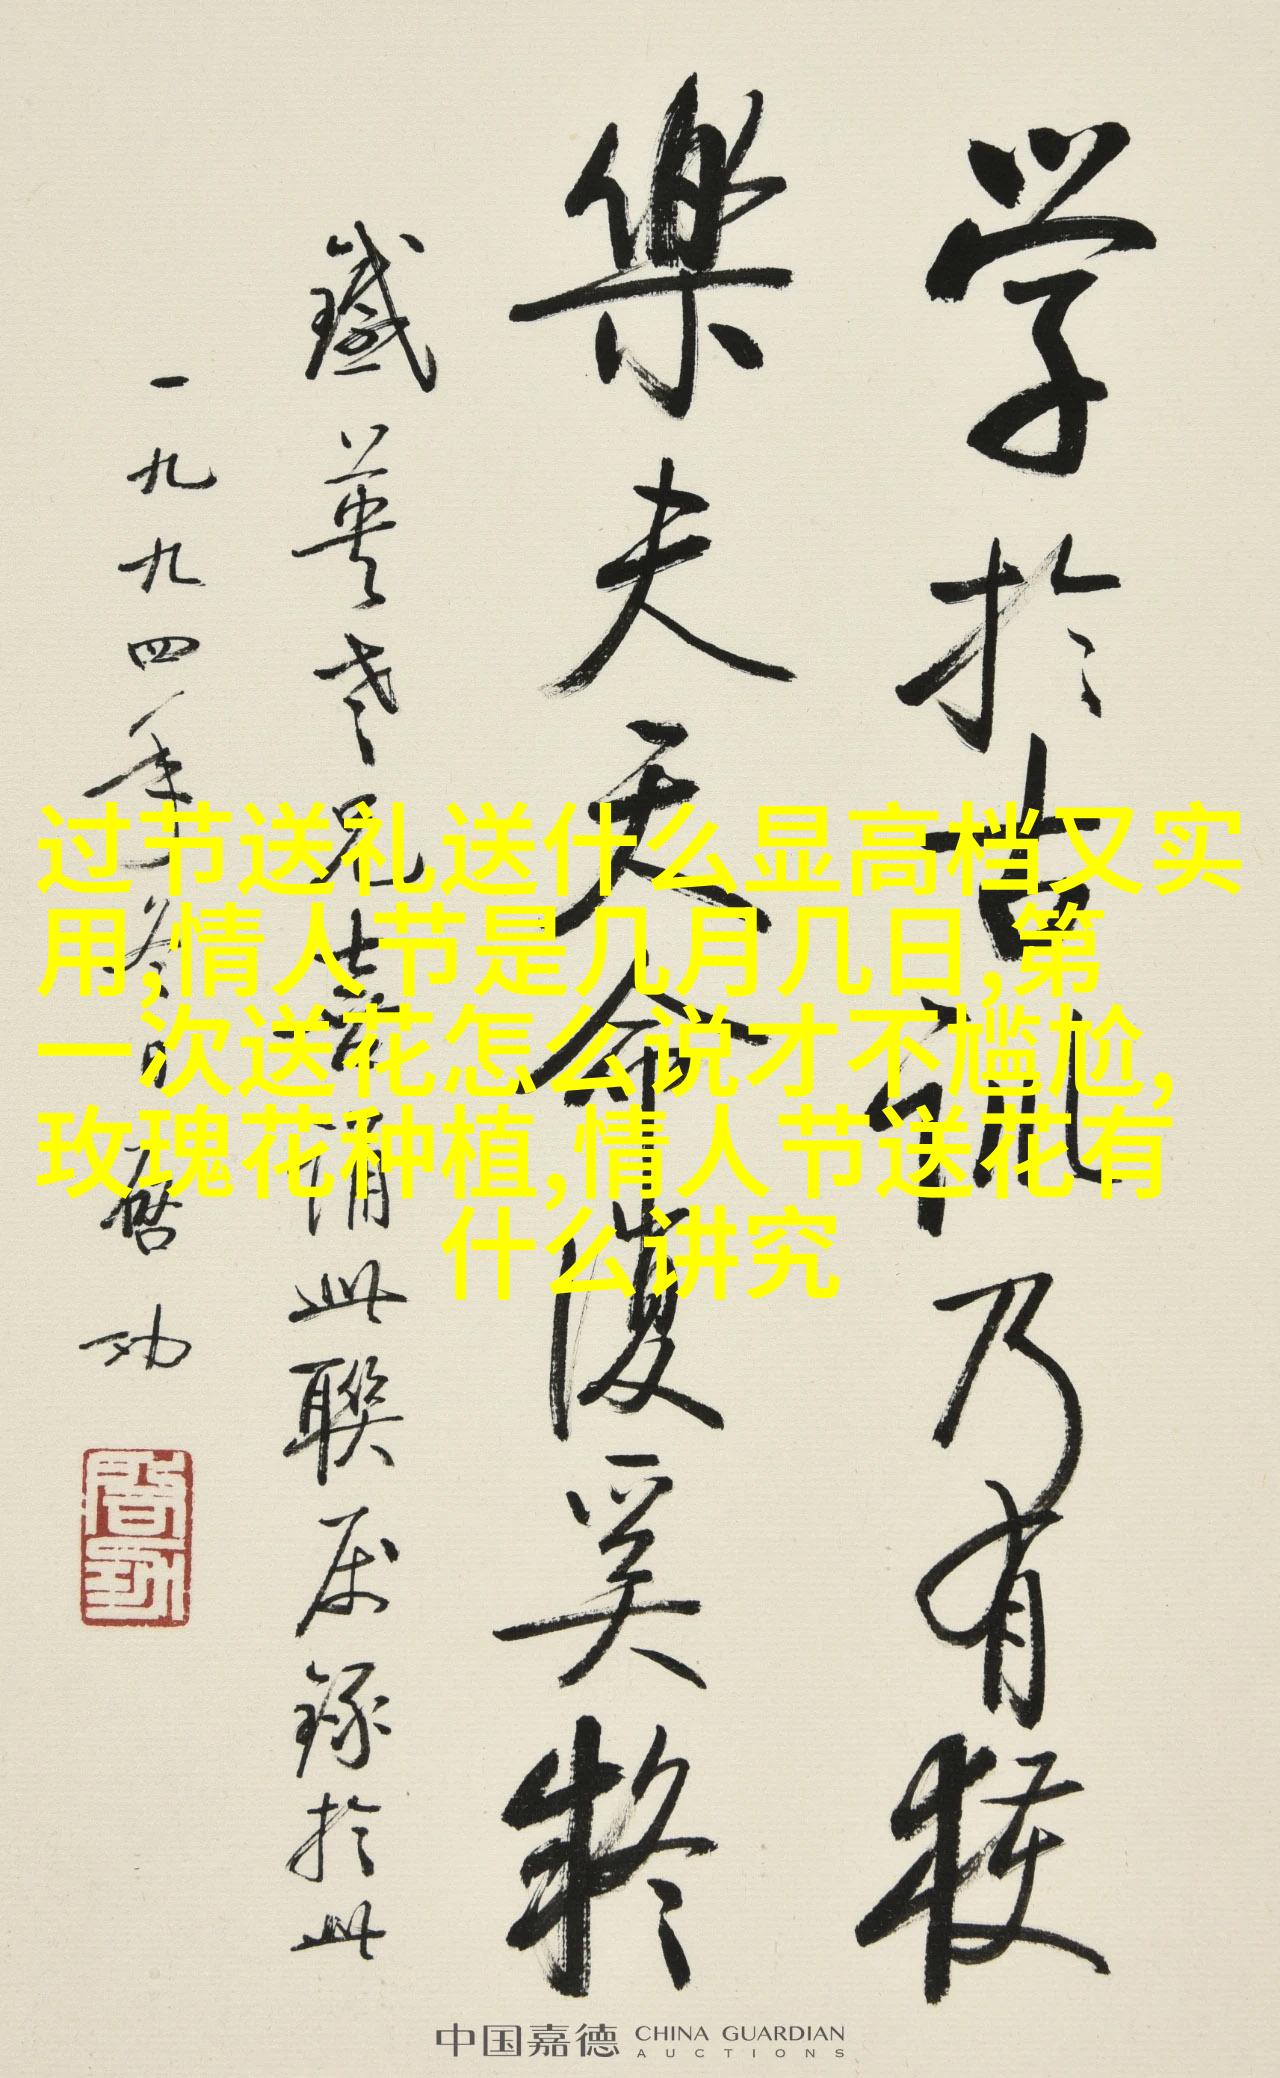 学於古訓乃有獲
樂夫天命復奚疑
鐵英老兄喜誦此聯属錄於此
一九九四年冬日 启功
启功
过节送礼送什么显高档又实
用,情人节是几月几日,第
一次送花怎么说才不尴尬,
玫瑰花种植,情人节送花有
什么讲究
中国嘉德 CHINA GUARDIAN
AUCTIONS